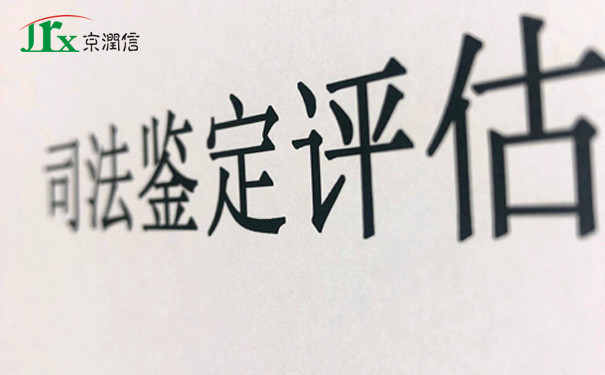 Jrx 京潤信
司法鉴定评估